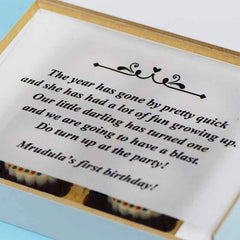 The year has gone by pretty quick
and she has had a lot of fun growing up.
Our little darling has turned one
and we are going to have a blast.
Do turn up at the party!
Mrudula's first birthday!